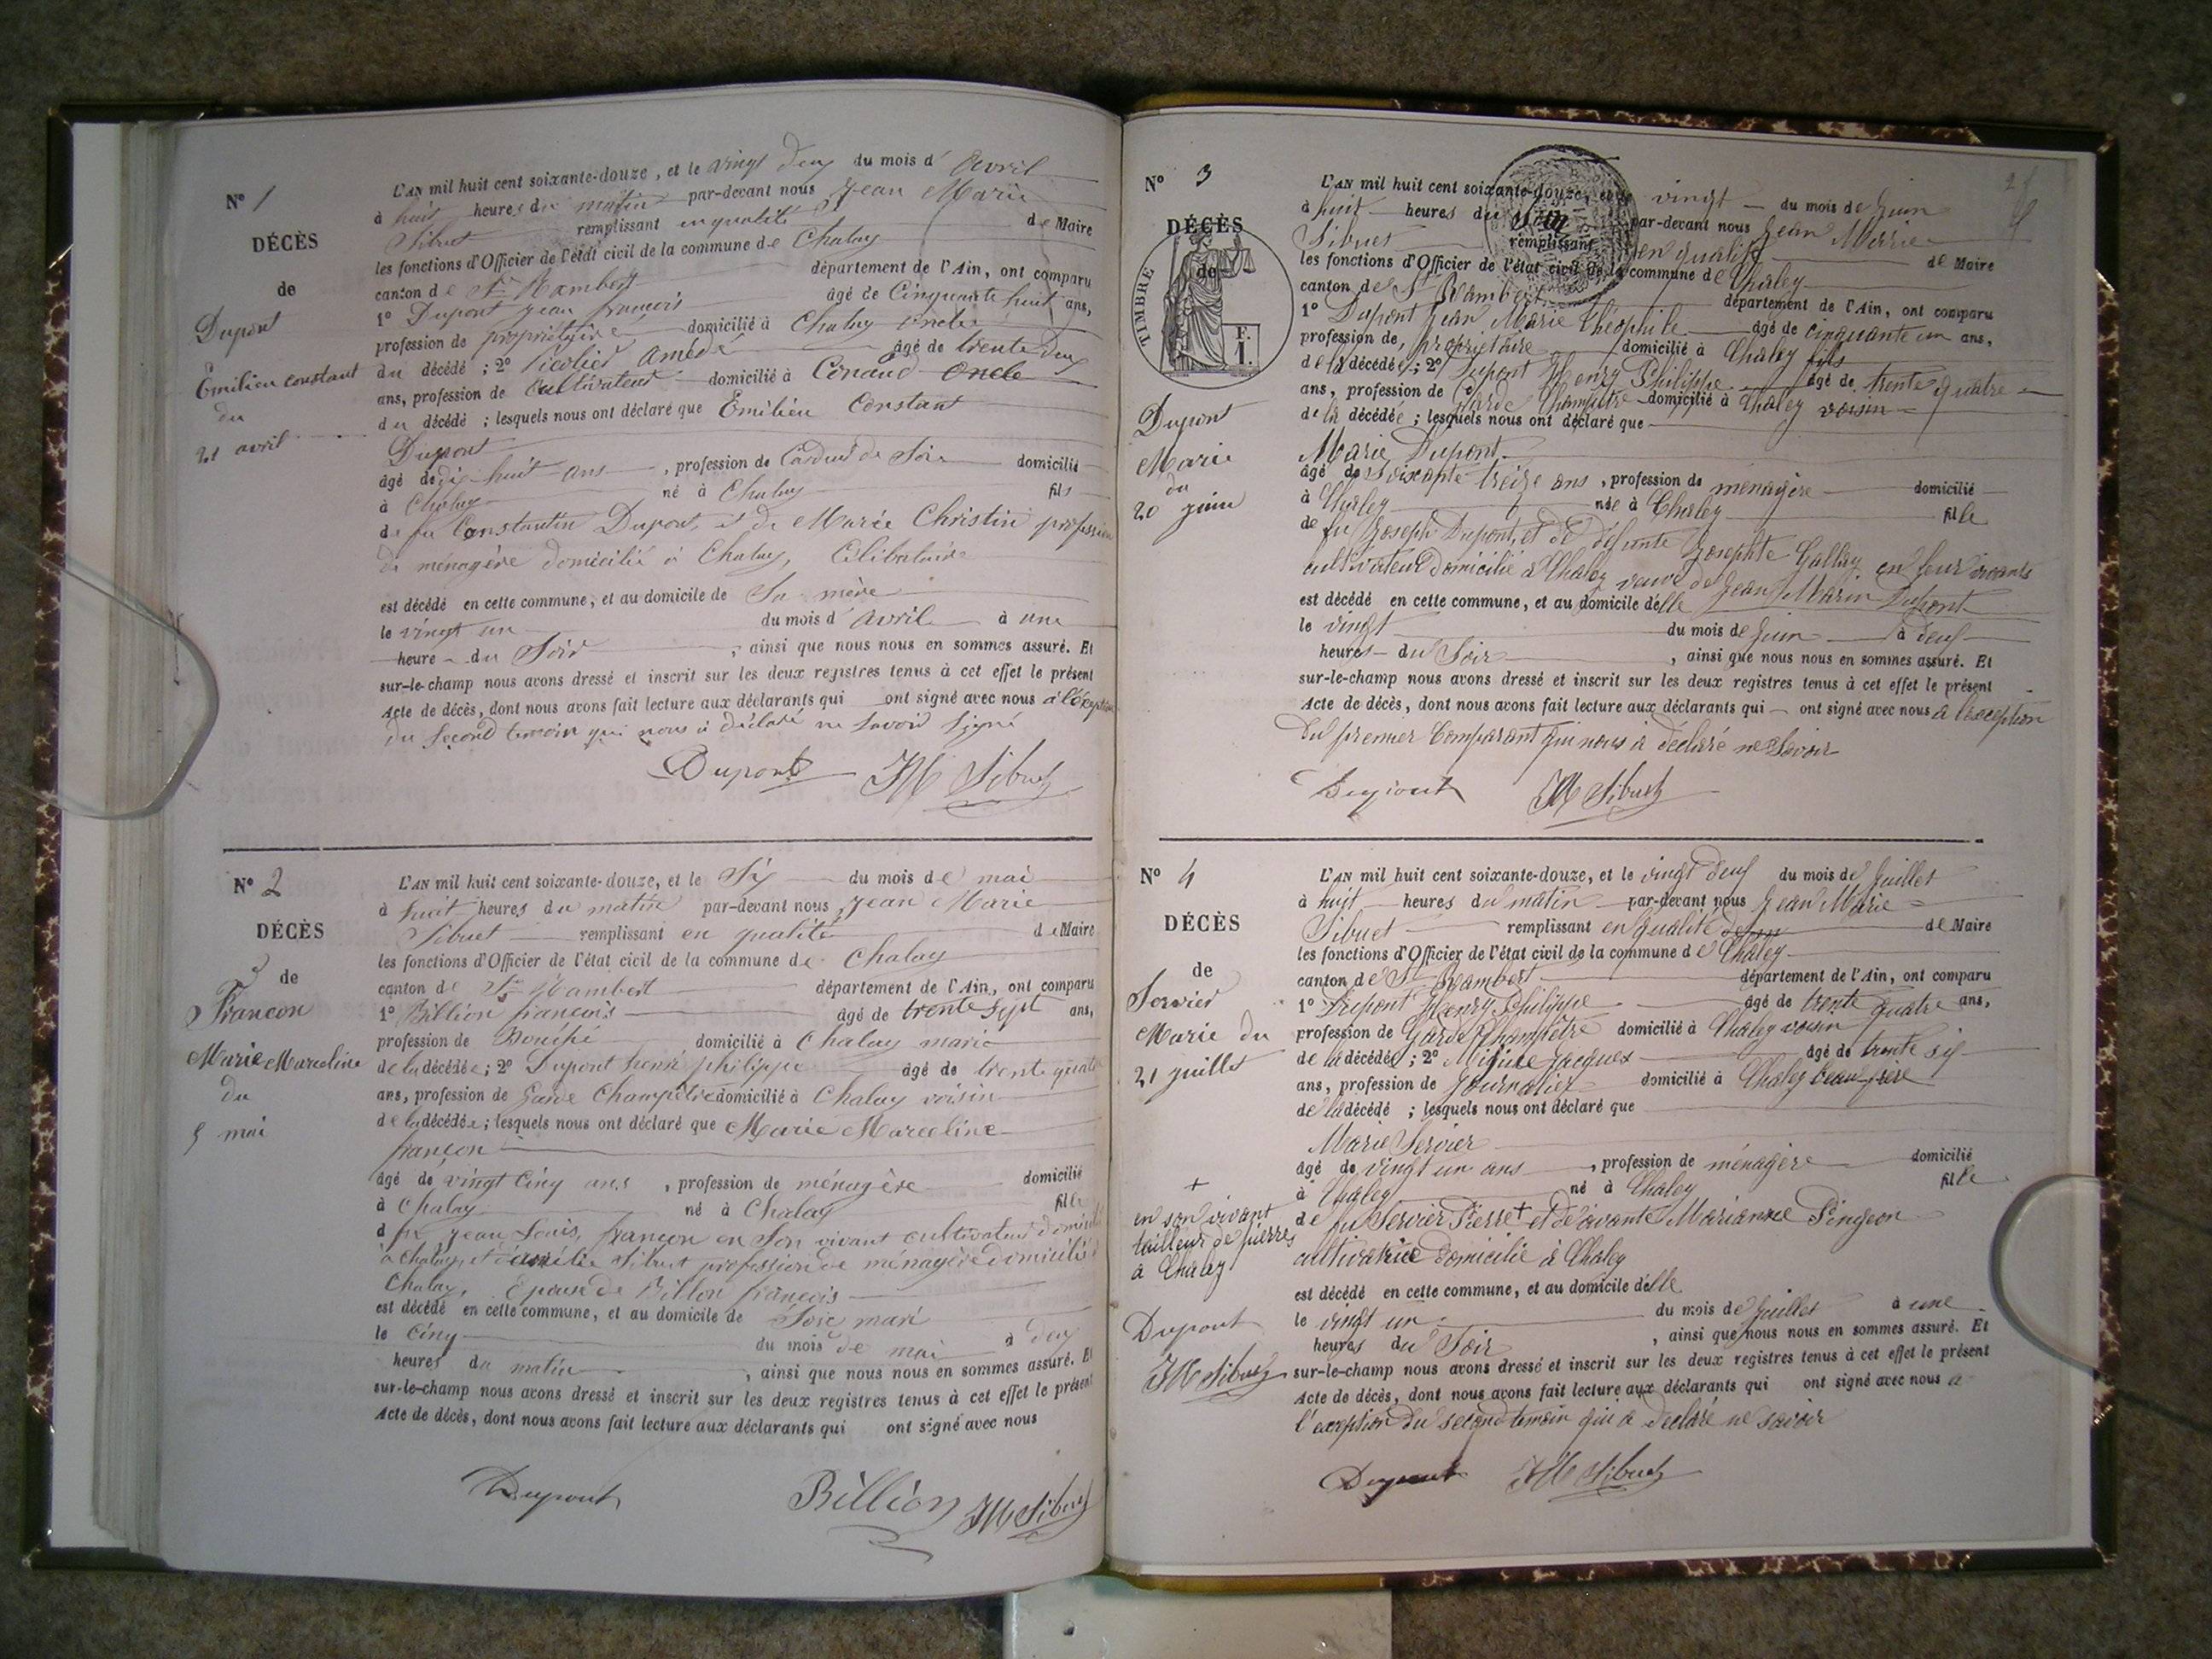 N° 1
DÉCÈS
de
Dupont
Émilien constant
du
21 avril
L'AN mil huit cent soixante-douze, et le vingt deux du mois d'avril
à huit heures du matin par-devant nous Jean Marie
Sibuet remplissant en qualité de Maire
les fonctions d'Officier de l'état civil de la commune de Chaley
canton de St Rambert département de l'Ain, ont comparu
1° Dupont Jean françois âgé de Cinquante huit ans,
profession de propriétaire domicilié à Chaley oncle
du décédé ; 2° amédé âgé de trente deux
ans, profession de Cultivateur domicilié à Conand Oncle
du décédé ; lesquels nous ont déclaré que Émilien Constant
Dupont
âgé de dix-huit ans, profession de Cardeur de Soie domicilié
à Chaley né à Chaley fils
de feu Constantin Dupont et de Marie Christin profession
de ménagère domicilié à Chaley, Célibataire
est décédé en cette commune, et au domicile de Sa mère
le vingt un du mois d'avril à une
heure du Soir, ainsi que nous nous en sommes assuré. Et
sur-le-champ nous avons dressé et inscrit sur les deux registres tenus à cet effet le présent
Acte de décès, dont nous avons fait lecture aux déclarants qui ont signé avec nous à l'exception
du second temoin qui nous a déclaré ne savoir signé
Dupont JM Sibuet
N° 2
DÉCÈS
de
Francon
Marie Marceline
du
5 mai
L'AN mil huit cent soixante-douze, et le Six du mois de mai
à huit heures du matin par-devant nous Jean Marie
Sibuet remplissant en qualité de Maire
les fonctions d'Officier de l'état civil de la commune de Chaley
canton de St Rambert département de l'Ain, ont comparu
1° Billion françois âgé de trente sept ans,
profession de domicilié à Chaley mari
de la décédée ; 2° Dupont henri philippe âgé de trente quatre
ans, profession de Garde Champêtre domicilié à Chaley voisin
de la décédée ; lesquels nous ont déclaré que Marie Marceline
françon
âgé de vingt Cinq ans, profession de ménagère domicilié
à Chaley né à Chaley fille
d feu Jean Louis françon en Son vivant cultivateur domicilié
à Chaley, et d'amélie Sibuet profession de ménagère domicilié à
Chaley, Epouse de Billon françois
est décédé en cette commune, et au domicile de Soie mari
le Cinq du mois de mai à deux
heures du matin, ainsi que nous nous en sommes assuré. Et
sur-le-champ nous avons dressé et inscrit sur les deux registres tenus à cet effet le présent
Acte de décès, dont nous avons fait lecture aux déclarants qui ont signé avec nous
Dupont Billion JM Sibuet
N° 3
DÉCÈS
de
TIMBRE
F.
1.
Dupont
Marie
du
20 juin
L'AN mil huit cent soixante-douze, et le vingt du mois de Juin
à huit heures du par-devant nous Jean Marie
Sibuet remplissant en qualité de Maire
les fonctions d'Officier de l'état civil de la commune de Chaley
canton de St Rambert département de l'Ain, ont comparu
1° Dupont Jean Marie Théophile âgé de cinquante un ans,
profession de, propriétaire domicilié à Chaley fils
de la décédée ; 2° Dupont Henry Philippe âgé de trente quatre
ans, profession de Garde Champêtre domicilié à Chaley voisin
de la décédée ; lesquels nous ont déclaré que
Marie Dupont
âgé de Soixante treize ans, profession de ménagère domicilié
à Chaley née à Chaley fille
de feu Joseph Dupont, et de défunte Josephte Gallay en leur vivants
cultivateur domicilié à Chaley veuve de Jean Marin Dupont
est décédé en cette commune, et au domicile d'elle
le vingt du mois de Juin à deux
heures du Soir, ainsi que nous nous en sommes assuré. Et
sur-le-champ nous avons dressé et inscrit sur les deux registres tenus à cet effet le présent
Acte de décès, dont nous avons fait lecture aux déclarants qui ont signé avec nous à l'exception
du premier Comparant qui nous a déclaré ne Savoir
Dupont JM Sibuet
N° 4
DÉCÈS
de
Servier
Marie du
21 juillet
L'AN mil huit cent soixante-douze, et le vingt deux du mois de Juillet
à huit heures du matin par-devant nous Jean Marie
Sibuet remplissant en qualité de Maire
les fonctions d'Officier de l'état civil de la commune de Chaley
canton de St Rambert département de l'Ain, ont comparu
1° Dupont Henry Philippe âgé de trente quatre ans,
profession de Garde Champêtre domicilié à Chaley voisin
de la décédée ; 2° Jacques âgé de trente six
ans, profession de Journalier domicilié à Chaley beau frère
de la décédé ; lesquels nous ont déclaré que
Marie Servier
âgé de vingt un ans, profession de ménagère domicilié
à Chaley né à Chaley fille
de feu Servier Pierre + et de vivante Marianne Pingeon
cultivatrice domicilie à Chaley
est décédé en cette commune, et au domicile d'elle
le vingt un du mois de Juillet à une
heures du Soir, ainsi que nous nous en sommes assuré. Et
sur-le-champ nous avons dressé et inscrit sur les deux registres tenus à cet effet le présent
Acte de décès, dont nous avons fait lecture aux déclarants qui ont signé avec nous à
l'exception du second temoin qui a déclaré ne savoir
Dupont JM Sibuet
+
en son vivant
tailleur de pierres
à Chaley
Dupont
JM Sibuet